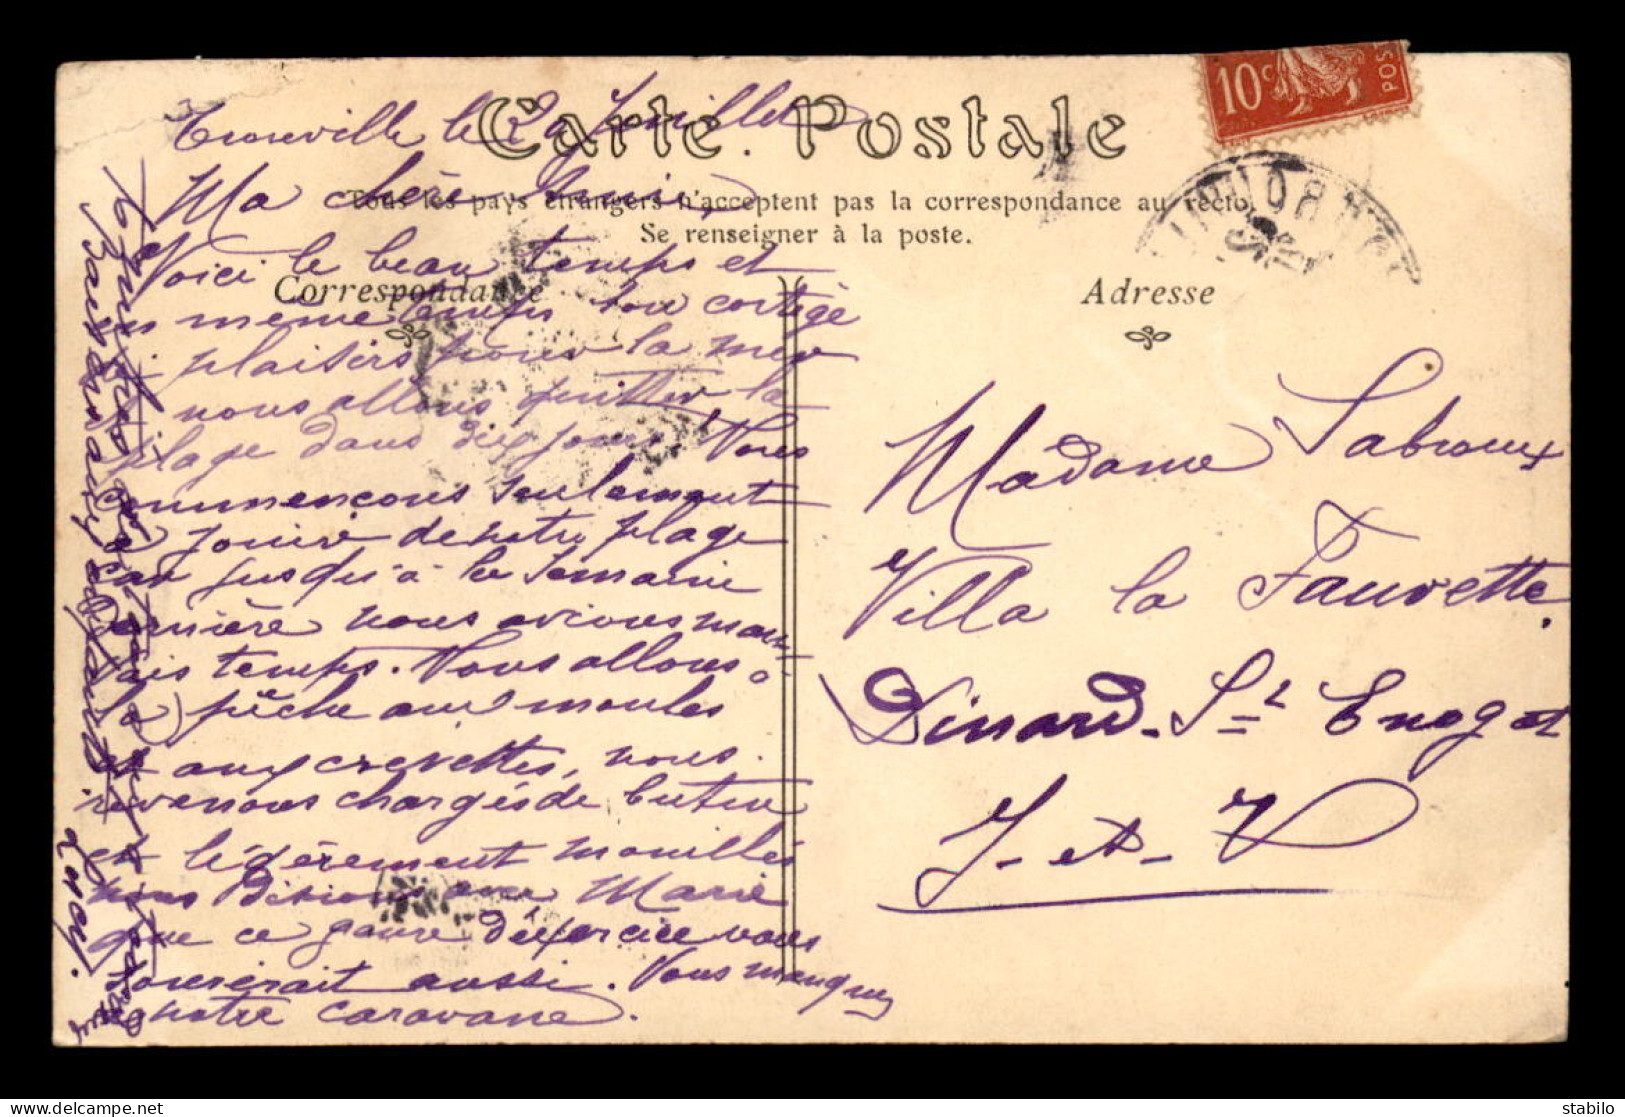 Carte Postale
Tous les pays étrangers n'acceptent pas la correspondance au recto.
Se renseigner à la poste.
Correspondance
Adresse
10c
POST
Trouville le 29 Juillet
Ma chère Amie,
Voici le beau temps et
en même temps son cortège
de plaisirs pour la mer
nous allons quitter la
plage dans dix jours. Nous
commencons seulement
à jouir de notre plage
car jusqu'à la semaine
dernière nous avions mau-
vais temps. Nous allons à
la pêche aux moules
et aux crevettes, nous
revenons chargés de butin
et légèrement mouillés
nous disions avec Marie
que ce genre d'exercice vous
sourirait aussi. Vous manquez
à notre caravane.
Lucy.
Madame Labroux
Villa la Fauvette.
Dinard-St Enogat
I-et-V
stabilo
delcampe.net